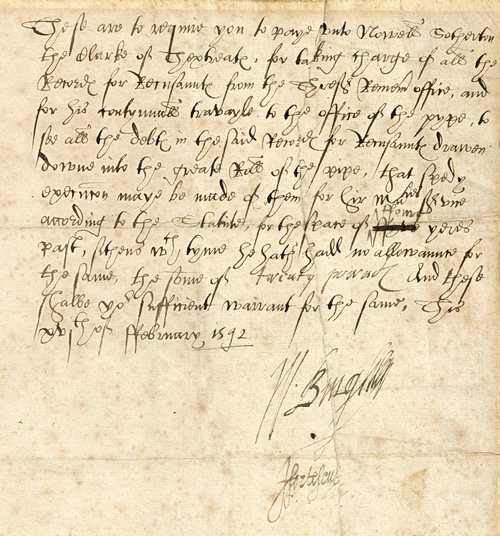 These are to require you to paye unto Nowell Sotherton
the Clarke of Thextreats, for taking charge of all the
Records for Recusants from the Remem office, and
for his contynuall travayle to the office of the pype, to
see all the debts in the said Records for Recusants drawen
downe into the great Roll of the pipe, that spedy
execucon maye be made of them for hir Maties service
according to the Statute, for the space of yeres
past, sithens wch tyme he hath hadd no allowaunce for
the same, the some of twenty pownds And these
shalbe yor sufficient warrant for the same, This
xvth of ffebruary 1592
W. Burghley
J Fortescue